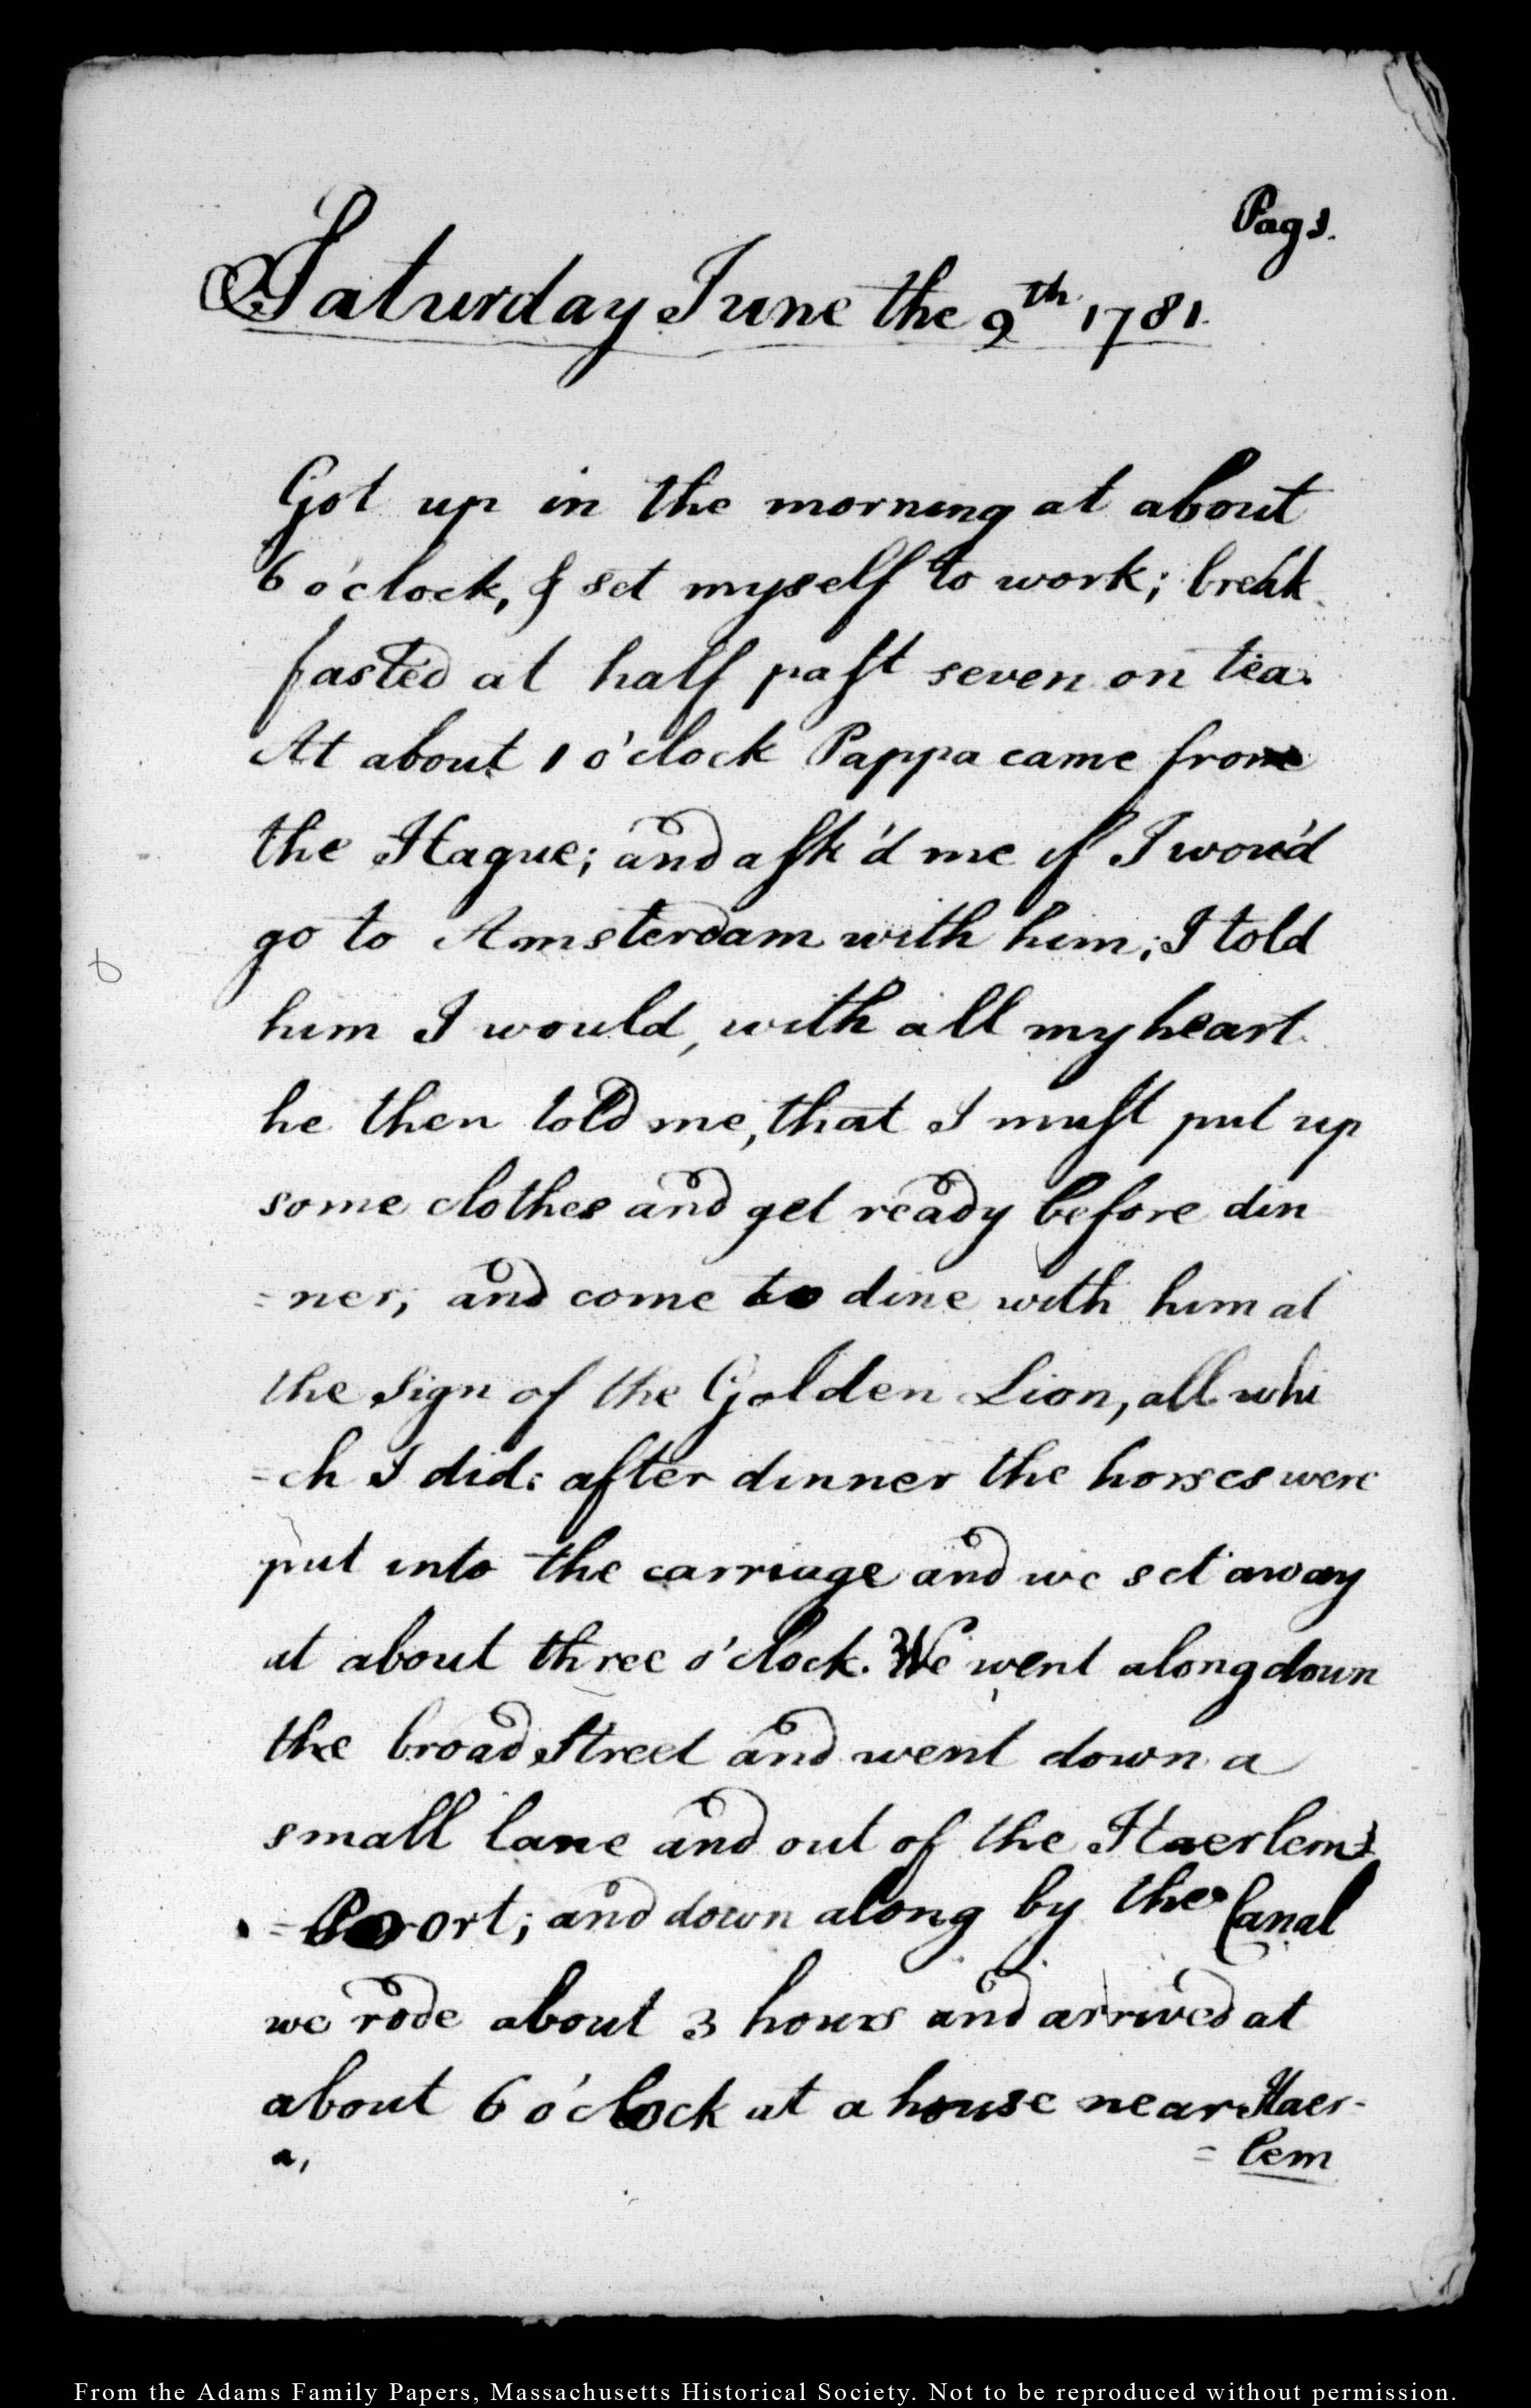 Pag 1.
Saturday June the 9th 1781.
Got up in the morning at about
6 o'clock, & set myself to work; break
fasted at half past seven on tea.
At about 1 o'clock Pappa came from
the Hague; and ask'd me if I wou'd
go to Amsterdam with him; I told
him I would, with all my heart.
he then told me, that I must put up
some clothes and get ready before din
=ner, and come to dine with him at
the sign of the Golden Lion, all whi
=ch I did: after dinner the horses were
put into the carriage and we set away
at about three o'clock. We went along down
the broad Street and went down a
small lane and out of the Haerlem=
=Poort; and down along by the Canal
we rode about 3 hours and arrived at
about 6 o'clock at a house near Haer-
a, =lem
From the Adams Family Papers, Massachusetts Historical Society. Not to be reproduced without permission.